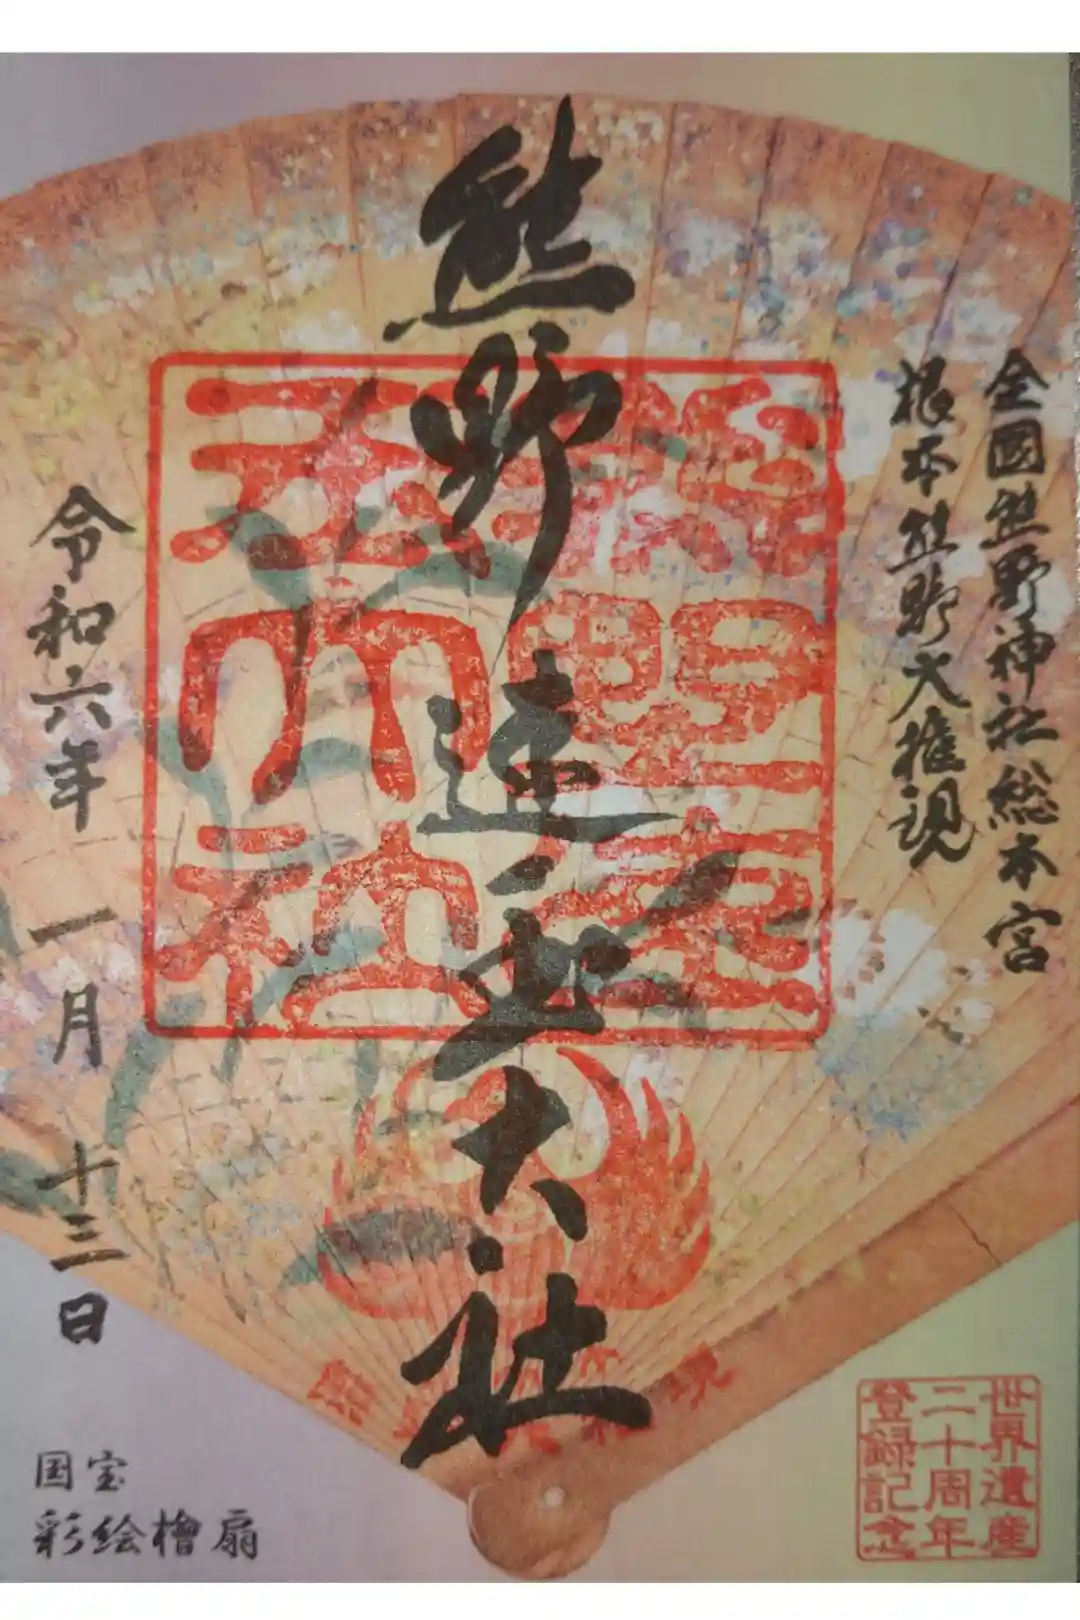 全國熊野神社総本宮
根本熊野大権現
熊野速玉大社
令和六年一月十三日
熊野速玉大社
世界遺産
二十周年
登録記念
国宝
彩絵檜扇